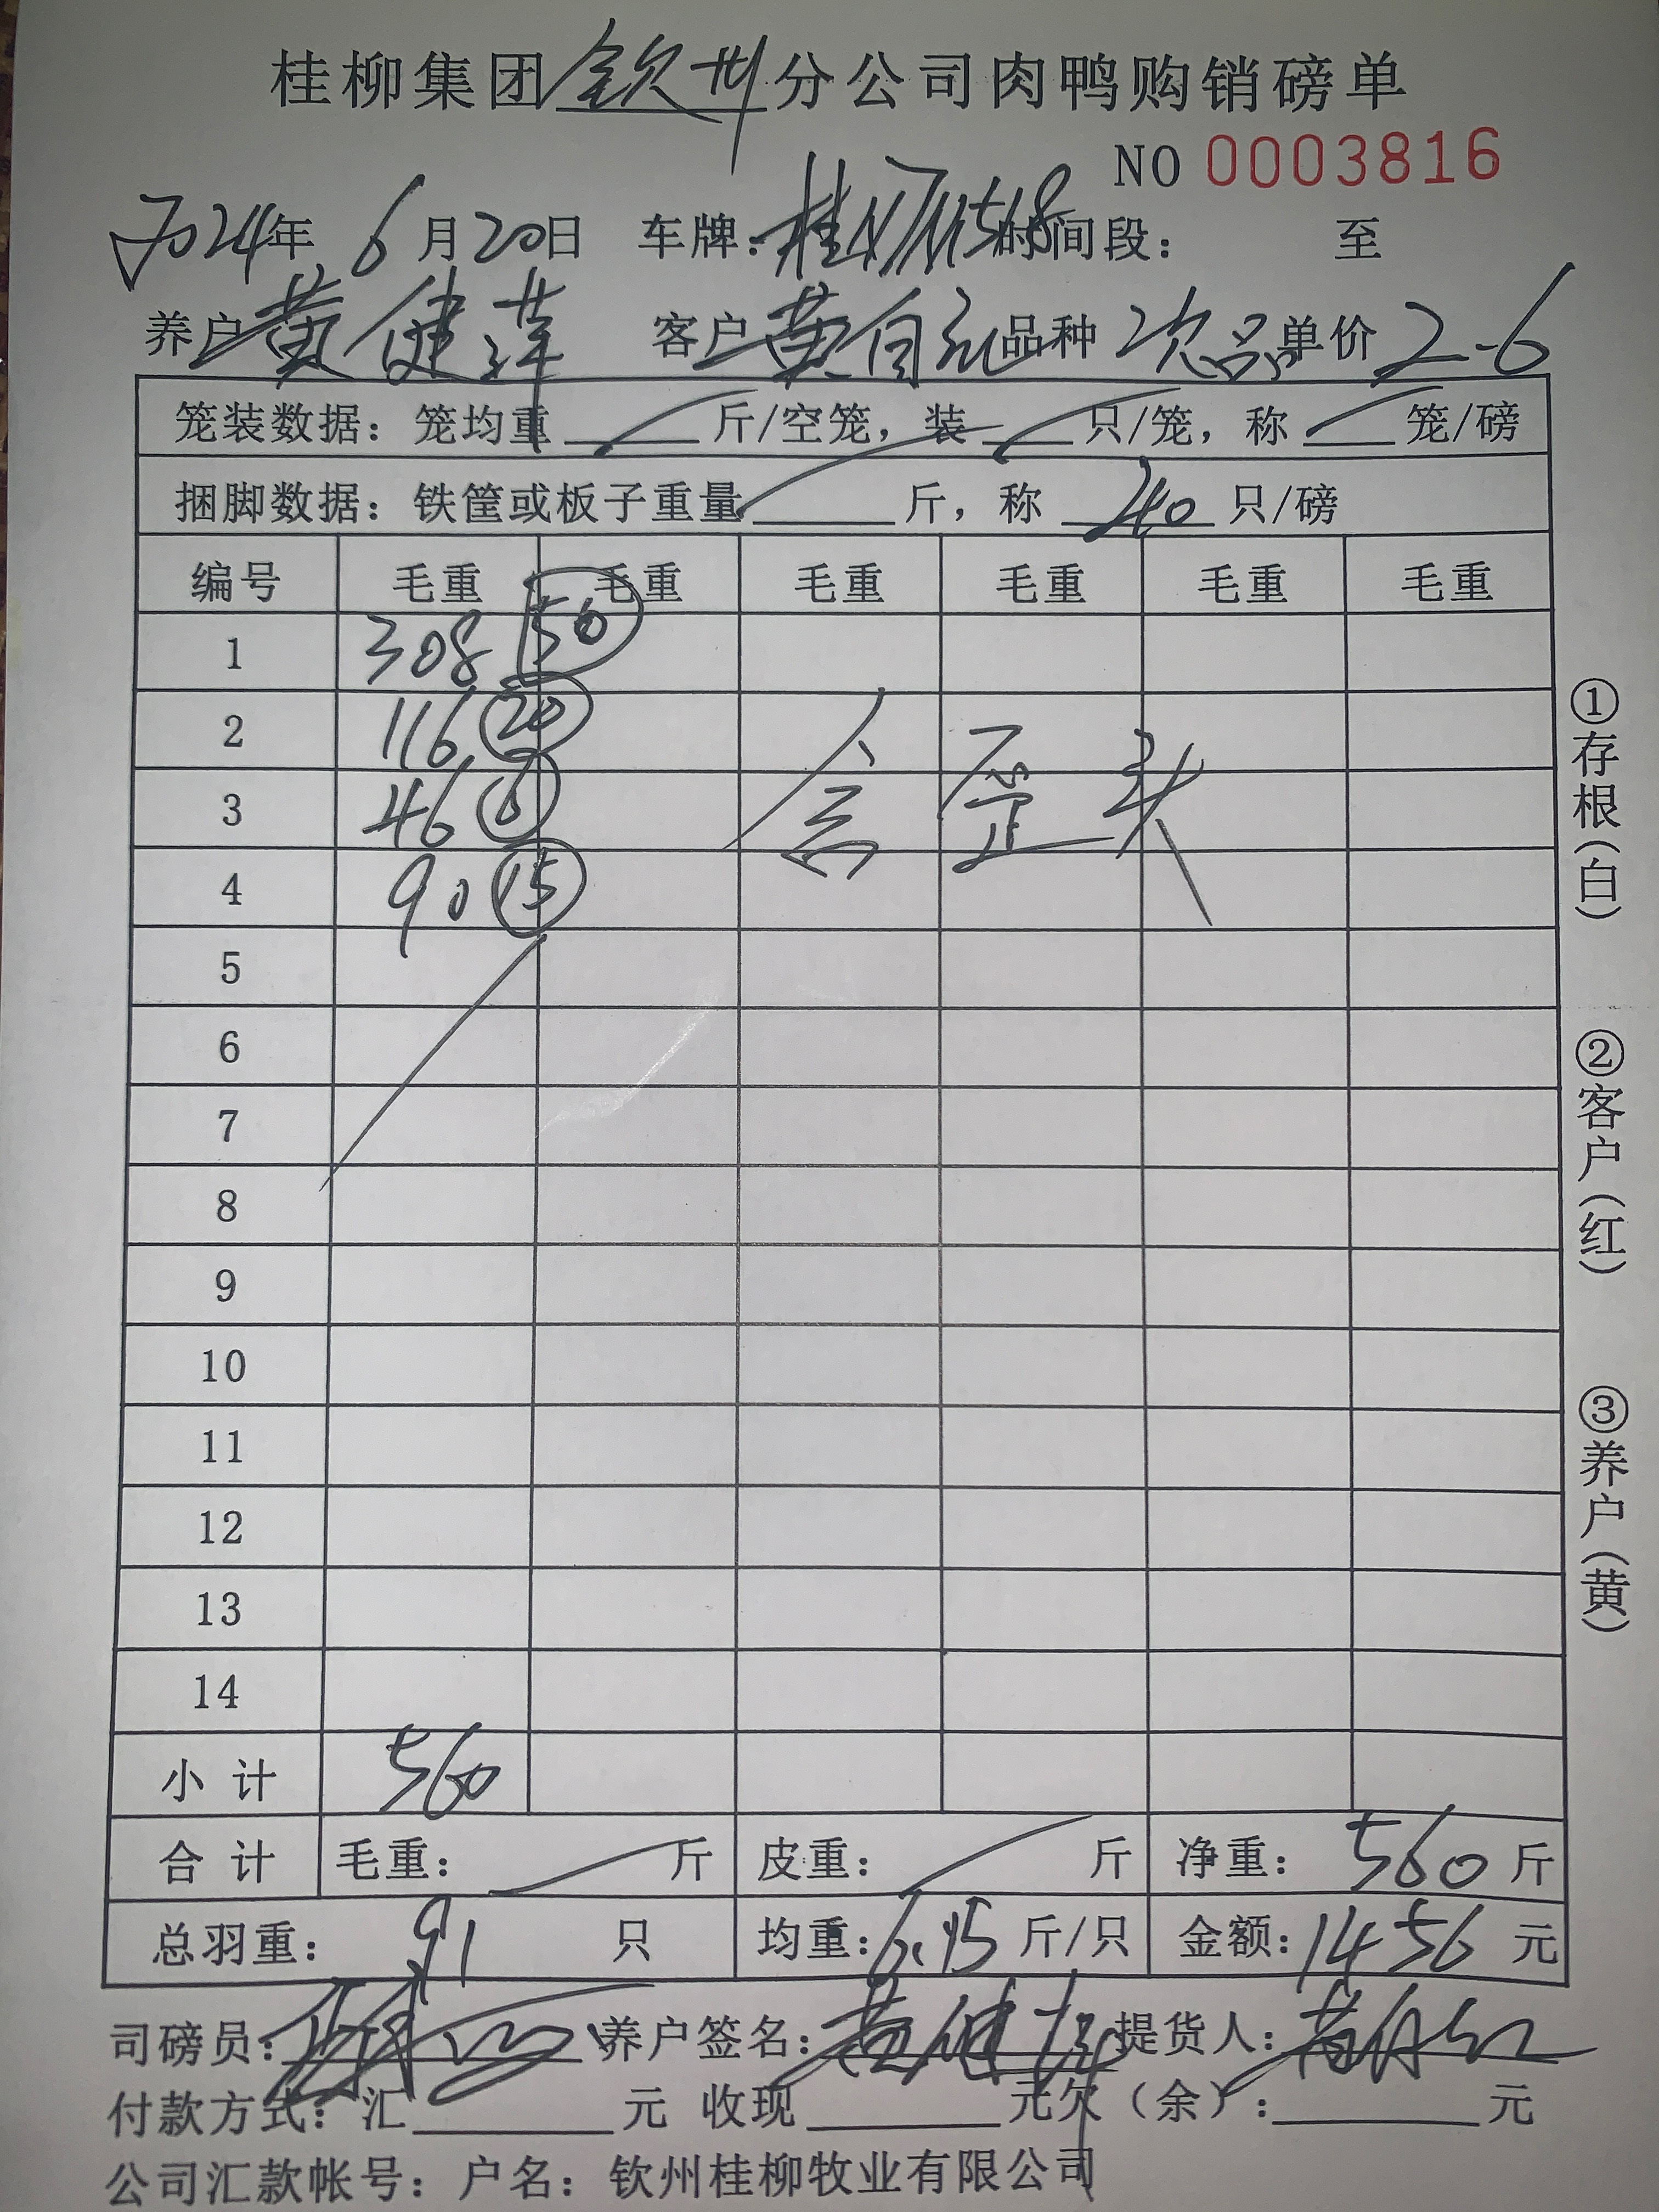 桂柳集团钦州分公司肉鸭购销磅单
NO 0003816
2024年6月20日 车牌：桂 时间段： 至
养户 黄健莲 客户 黄自 品种 次品 单价 2-6
笼装数据：笼均重 斤/空笼，装 只/笼，称 笼/磅
捆脚数据：铁筐或板子重量 斤，称 40 只/磅
编号 毛重 毛重 毛重 毛重 毛重 毛重
1 308 50
2 116 20
3 46 6
4 90 15
含歪头
5
6
7
8
9
10
11
12
13
14
小计 560
合计 毛重： 斤 皮重： 斤 净重：560 斤
总羽重：91 只 均重：6.15 斤/只 金额：1456 元
司磅员： 养户签名：黄健 提货人：
付款方式：汇 元 收现 元欠（余）： 元
公司汇款帐号：户名：钦州桂柳牧业有限公司
①存根（白）
②客户（红）
③养户（黄）